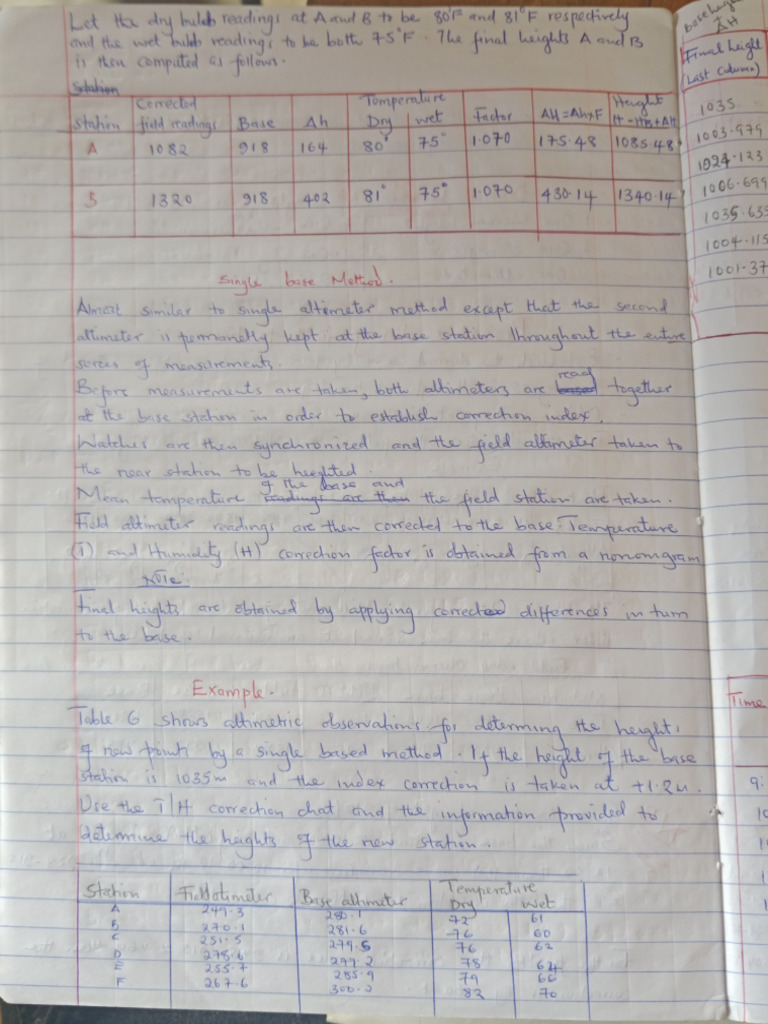 Let the dry bulb readings at A and B to be 80°F and 81°F respectively
and the wet bulb readings to be both 75°F. The final heights A and B
is then computed as follows.
Station
Station Corrected field readings Base Δh Temperature Dry wet Factor ΔH=ΔhxF Height H=HB+ΔH
A 1082 918 164 80° 75° 1.070 175.48 1085.48
B 1320 918 402 81° 75° 1.070 430.14 1340.14
Single base Method.
Almost similar to single altimeter method except that the second
altimeter is permanetly kept at the base station throughout the entire
series of measurements.
Before measurements are taken, both altimeters are read together
at the base station in order to establish correction index.
Watches are then synchronized and the field altimeter taken to
the near station to be heighted.
Mean temperature of the base and the field station are taken.
Field altimeter readings are then corrected to the base Temperature
(T) and Humidity (H) correction factor is obtained from a nonomgram
NOTE:
Final heights are obtained by applying corrected differences in turn
to the base.
Example.
Table 6 shows altimetric observations for determing the height
of new points by a single based method. If the height of the base
station is 1035m and the index correction is taken at +1.2m.
Use the T/H correction chat and the information provided to
determine the heights of the new station.
Station Field altimeter Base altimeter Temperature Dry Wet
A 249.3 280.1 72 61
B 270.1 281.6 76 60
C 251.5 279.5 76 62
D 278.6 299.2 78 64
E 255.7 285.9 79 66
F 267.6 300.2 82 70
ΔH
Final height
(Last Column)
1035
1003.979
1024.123
1006.699
1035.635
1004.115
1001.37
Time
9:
10